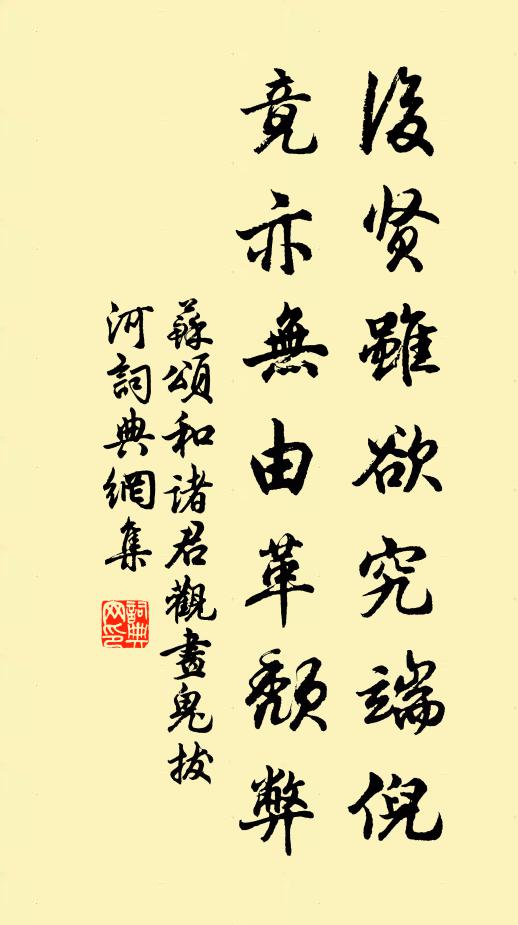 後贤雖欲究端倪
竟亦無由革颓弊
蘇頌和诸君觀畫鬼拔
河詞典網集
詞典
网印